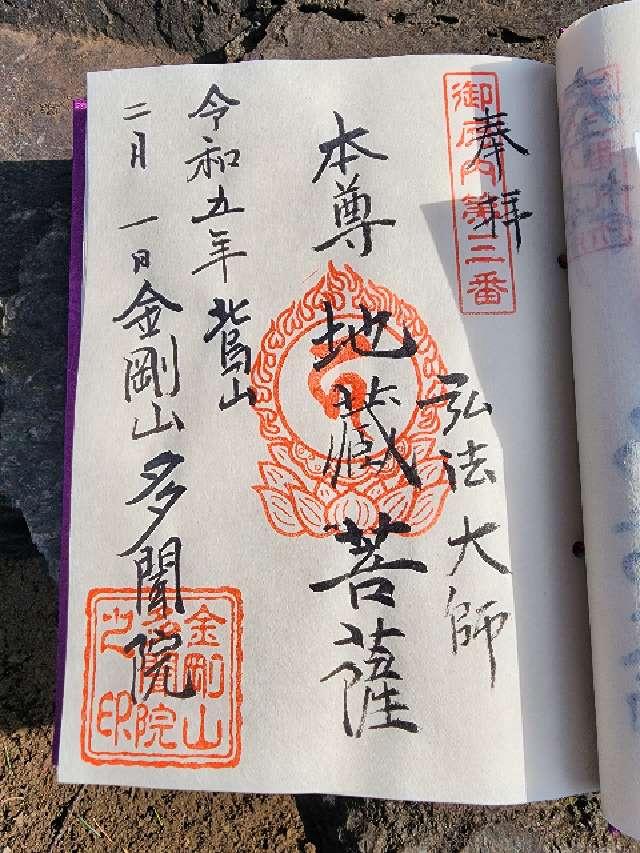 御府内第三番
奉拝
弘法大師
本尊 地蔵菩薩
令和五年 北烏山
二月一日 金剛山 多聞院
金剛山
多聞院
之印